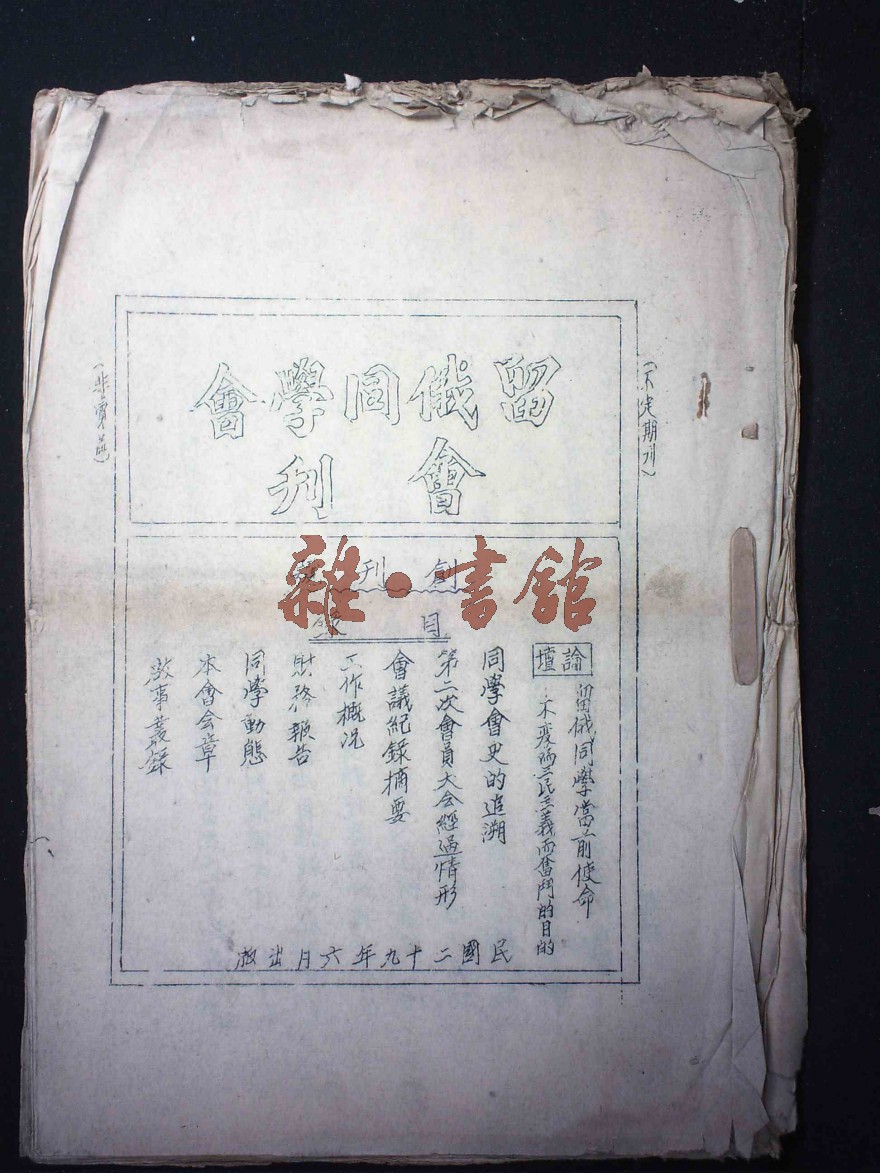 (不定期刊)
留俄同學會
會刊
(非賣品)
創刊
目錄
論壇
留俄同學當前使命
不變為三民主義而奮鬥的目的
同學會史的追溯
第二次會員大会經過情形
會議紀錄摘要
工作概況
財務報告
同學動態
本會会章
啟事叢錄
民國二十九年六月出版
雜·書館